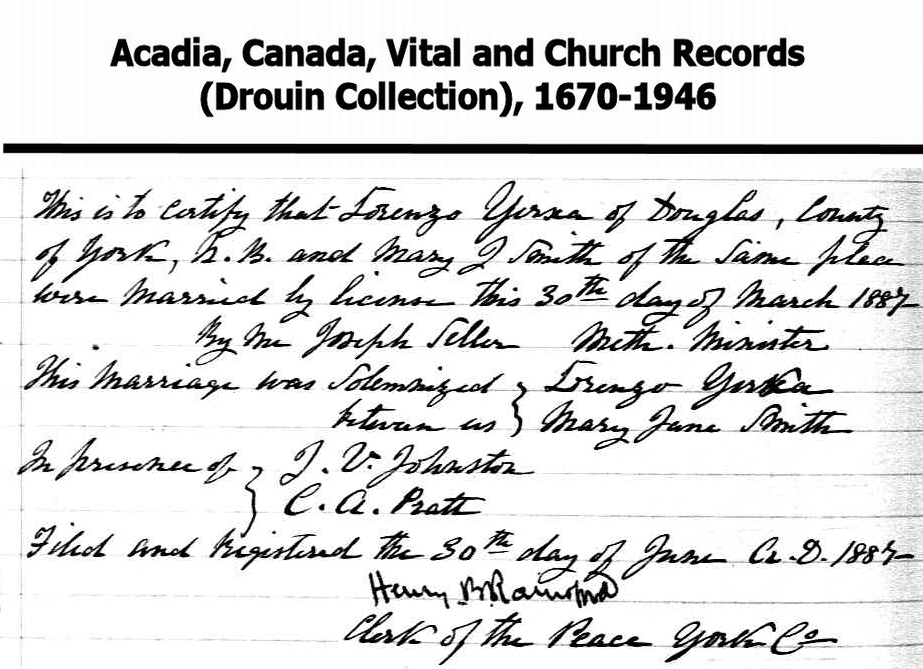 Acadia, Canada, Vital and Church Records
(Drouin Collection), 1670-1946
This is to Certify that Lorenzo Yerxa of Douglas, County
of York, N.B. and Mary J Smith of the Same place
were Married by license this 30th day of March 1887
By me Joseph Seller Meth. Minister
This Marriage was Solemnized } Lorenzo Yerxa
between us } Mary Jane Smith
In presence of } J. V. Johnston
C. A. Pratt
Filed and Registered the 30th day of June A.D. 1887
Henry B
Clerk of the Peace York Co